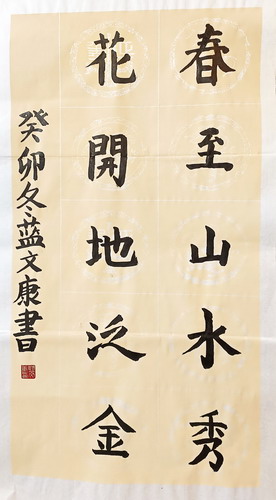 春至山水秀
花開地泛金
癸卯冬藍文康書